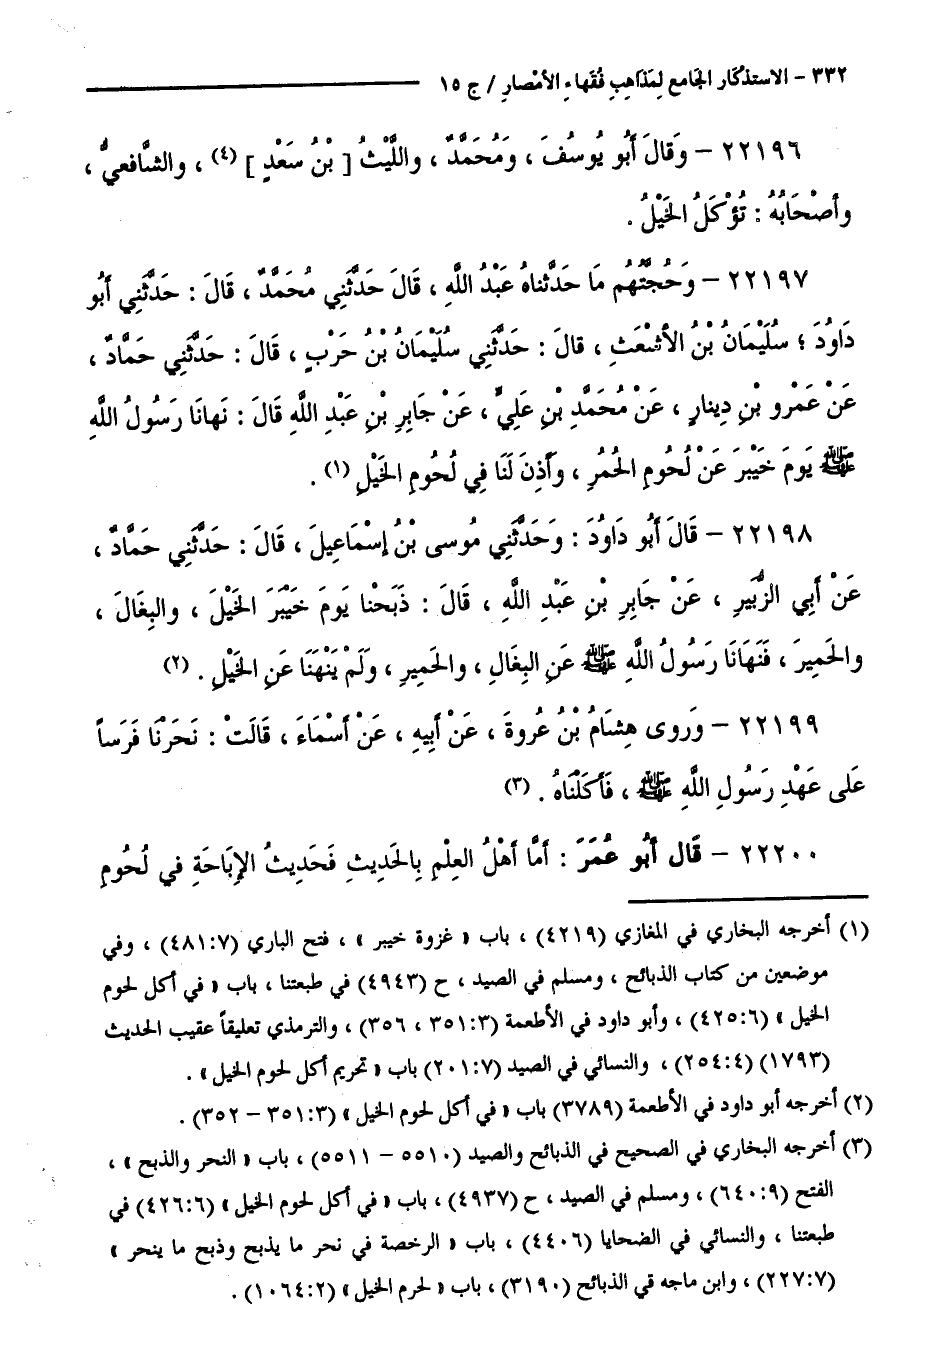 ٣٣٢ - الاستذكار الجامع لمذاهب فقهاء الأمصار / ج ١٥
٢٢١٩٦ - وَقالَ أَبُو يُوسُفَ ، ومُحَمَّدٌ ، واللَّيْثُ [ بْنُ سَعْدٍ ] (٤) ، والشَّافعيُّ ،
وأصْحَابُهُ : تُؤْكَلُ الخَيْلُ .
٢٢١٩٧ - وَحُجَّتُهُم مَا حَدَّثناهُ عَبْدُ اللَّهِ ، قَالَ حَدَّثَنِي مُحَمَّدٌ ، قَالَ : حَدَّثَنِي أَبُو
دَاوُدَ ؛ سُلَيْمَانُ بْنُ الأشْعَثِ ، قالَ : حَدَّثَنِي سُلَيْمَانُ بْنُ حَرْبٍ ، قَالَ : حَدَّثَنِي حَمَّادٌ ،
عَنْ عَمْرو بْنِ دِينارٍ ، عَنْ مُحَمَّدِ بْنِ عَلِيٍّ ، عَنْ جَابِرِ بْنِ عَبْدِ اللَّهِ قَالَ : نَهانَا رَسُولُ اللَّهِ
ﷺ يَومَ خَيْبرَ عَنْ لُحُومِ الحُمُرِ ، وأَذِنَ لَنَا فِي لُحُومِ الخَيْلِ (١) .
٢٢١٩٨ - قَالَ أَبُو دَاوُدَ : وَحَدَّثَنِي مُوسى بْنُ إِسْمَاعِيلَ ، قَالَ : حَدَّثَنِي حَمَّادٌ ،
عَنْ أَبِي الزُّبَيرِ ، عَنْ جَابِرِ بْنِ عَبْدِ اللَّهِ ، قَالَ : ذَبَحْنا يَومَ خَيْبَرَ الخَيْلَ ، والبِغَالَ ،
والحَمِيرَ ، فَنَهَانَا رَسُولُ اللَّهِ ﷺ عَنِ البِغَالِ ، والحَمِيرِ ، وَلَمْ يَنْهَنَا عَنِ الخَيْلِ . (٢)
٢٢١٩٩ - وَروى هِشَامُ بْنُ عُروةَ ، عَنْ أَبِيهِ ، عَنْ أَسْمَاءَ ، قَالَتْ : نَحَرْنَا فَرَساً
عَلى عَهْدِ رَسُولِ اللَّهِ ﷺ ، فَأَكَلْنَاهُ . (٣)
٢٢٢٠٠ - قَال أَبُو عُمَرَ : أَمَّا أَهْلُ العِلْمِ بِالحَدِيثِ فَحَدِيثُ الإِبَاحَةِ فِي لُحُومِ
(١) أخرجه البخاري في المغازي (٤٢١٩) ، باب « غزوة خيبر » ، فتح الباري (٤٨١:٧) ، وفي
موضعين من كتاب الذبائح ، ومسلم في الصيد ، ح (٤٩٤٣) في طبعتنا ، باب « في أكل لحوم
الخيل » (٤٢٥:٦) ، وأبو داود في الأطعمة (٣٥١:٣ ، ٣٥٦) ، والترمذي تعليقاً عقيب الحديث
(١٧٩٣) (٢٥٤:٤) ، والنسائي في الصيد (٢٠١:٧) باب « تحريم أكل لحوم الخيل » .
(٢) أخرجه أبو داود في الأطعمة (٣٧٨٩) باب « في أكل لحوم الخيل » (٣٥١:٣ - ٣٥٢) .
(٣) أخرجه البخاري في الصحيح في الذبائح والصيد (٥٥١٠ - ٥٥١١) ، باب « النحر والذبح » ،
الفتح (٦٤٠:٩) ، ومسلم في الصيد ، ح (٤٩٣٧) ، باب « في أكل لحوم الخيل » (٤٢٦:٦) في
طبعتنا ، والنسائي في الضحايا (٤٤٠٦) ، باب « الرخصة في نحر ما يذبح وذبح ما ينحر »
(٢٢٧:٧) ، وابن ماجه قي الذبائح (٣١٩٠) ، باب « لحرم الخيل » (١٠٦٤:٢) .